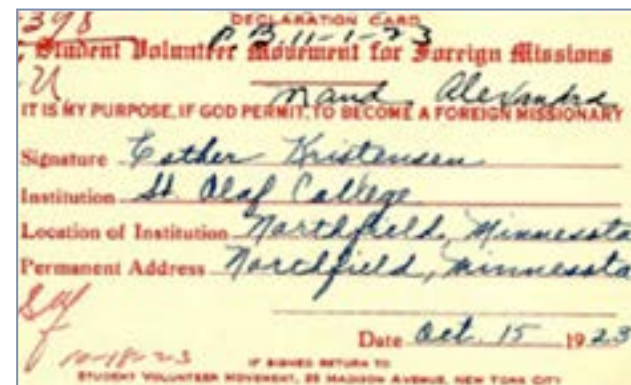 398
DECLARATION CARD
P B. 11-1-23
Student Volunteer Movement for Foreign Missions
U
Alexandra
IT IS MY PURPOSE, IF GOD PERMIT, TO BECOME A FOREIGN MISSIONARY
Signature Esther Kristensen
Institution St. Olaf College
Location of Institution Northfield, Minnesota
Permanent Address Northfield, Minnesota
Date Oct. 15 1923
10-18-23
IF SIGNED RETURN TO
STUDENT VOLUNTEER MOVEMENT, 25 MADISON AVENUE, NEW YORK CITY